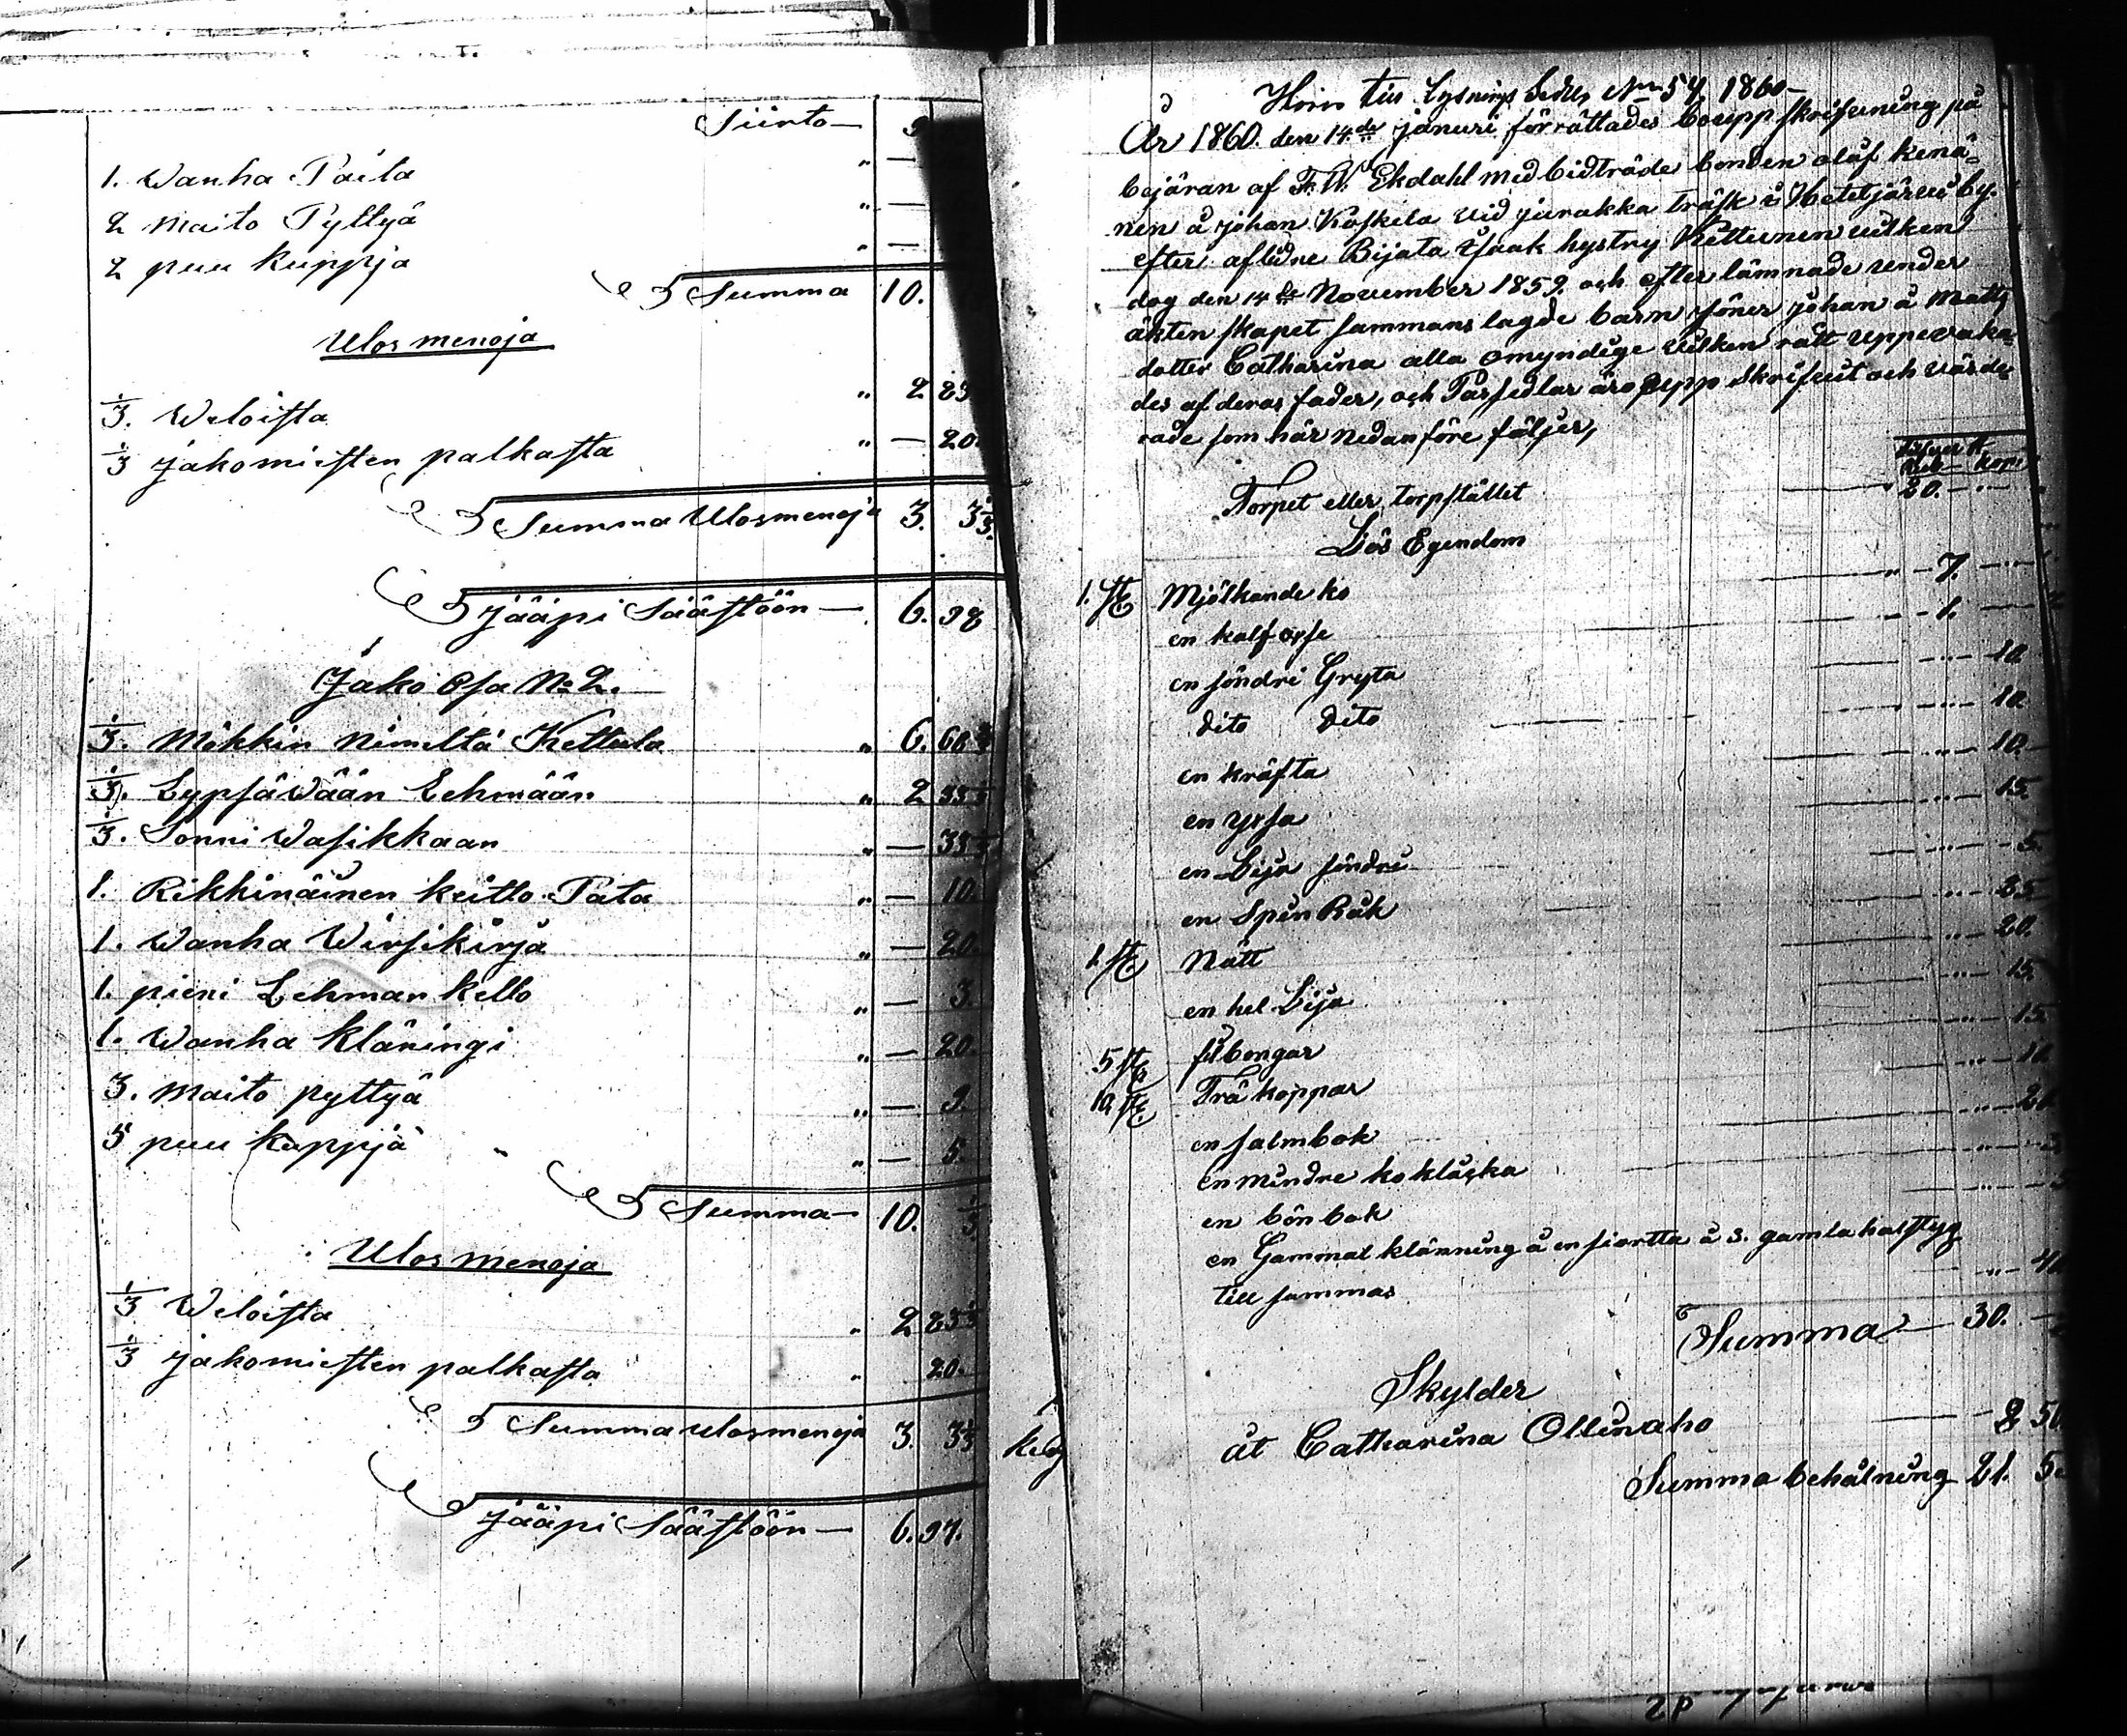 Siirto — 9
1. Wanha Paita " —
2 Maito Pyttyä " —
2 puu Kuppja " —
Summa 10.
Ulosmenoja
1/3. Weloista " 2 83
1/3 jakomiesten palkasta " — 20.
Summa Ulosmenoja 3. 3 1/3.
jääpi Säästöön — 6. 98
Jako Osa No 2.
1/3. Mökkin nimeltä Kettula " 6. 66 2/3
1/3. Lypsäwään Lehmään " 2 33 1/3
1/3. Sonni wasikkaan " — 33 1/3
1. Rikkinäinen keitto Pata " — 10.
1. Wanha Wirsikirja " — 20.
1. pieni Lehman kello " — 3.
1. Wanha kläningi " — 20.
3. Maito pyttyä " — 9.
5 puu kuppjä " — 5.
Summa — 10. 1/3
Ulosmenoja
1/3 Weloista " 2 83 1/3
1/3 jakomiesten palkasta " 20.
Summa ulosmenoja 3. 3 1/3
jääpi Säästöön — 6. 97.
1860 —
År 1860. den 14de januri förrättades bouppskrifuning på
bejäran af F. W. Ekdahl med bidträde bonden oluf kenä=
nen å johan Koskela vid jurakka träsk i Hetejärvi by.
efter aflidne Bijata Isaak hystry Kettunen vilken
dog den 14de November 1859. och efter lämnade under
äkten skapet sammans lagde barn söner johan å Matts
dotter Catharina alla omyndige vilken rätt uppevaka=
des af deras fader, och Parsedlar äro upp skrifuit och värde=
rade som här nedanföre fäljer,
Rub — kop.
Torpet eller torpstället — 20. — "
Lös Egendom
1. st Mjölkande ko — 7. —
en kalf oxse — 1. —
en söndri Gryta — 10
dito dito — 10
en kräfta — 10.
en yxsa — 15.
en Lija söndri — 5.
en Spin Råk — 25
1. st Nätt — 20.
en hel Lija — 15.
5 st filbongar — 15.
10 st Träkoppar — 10.
en salmbok — 20
en mindre ko klåcka — 3
en bön bok — 5
en Gammal klänning å en siortta å 3. gamla halstyg
till sammas — 40
Summa — 30.
Skylder
åt Catharina Ollinaho — 8 50
Summa behålning 21. 5